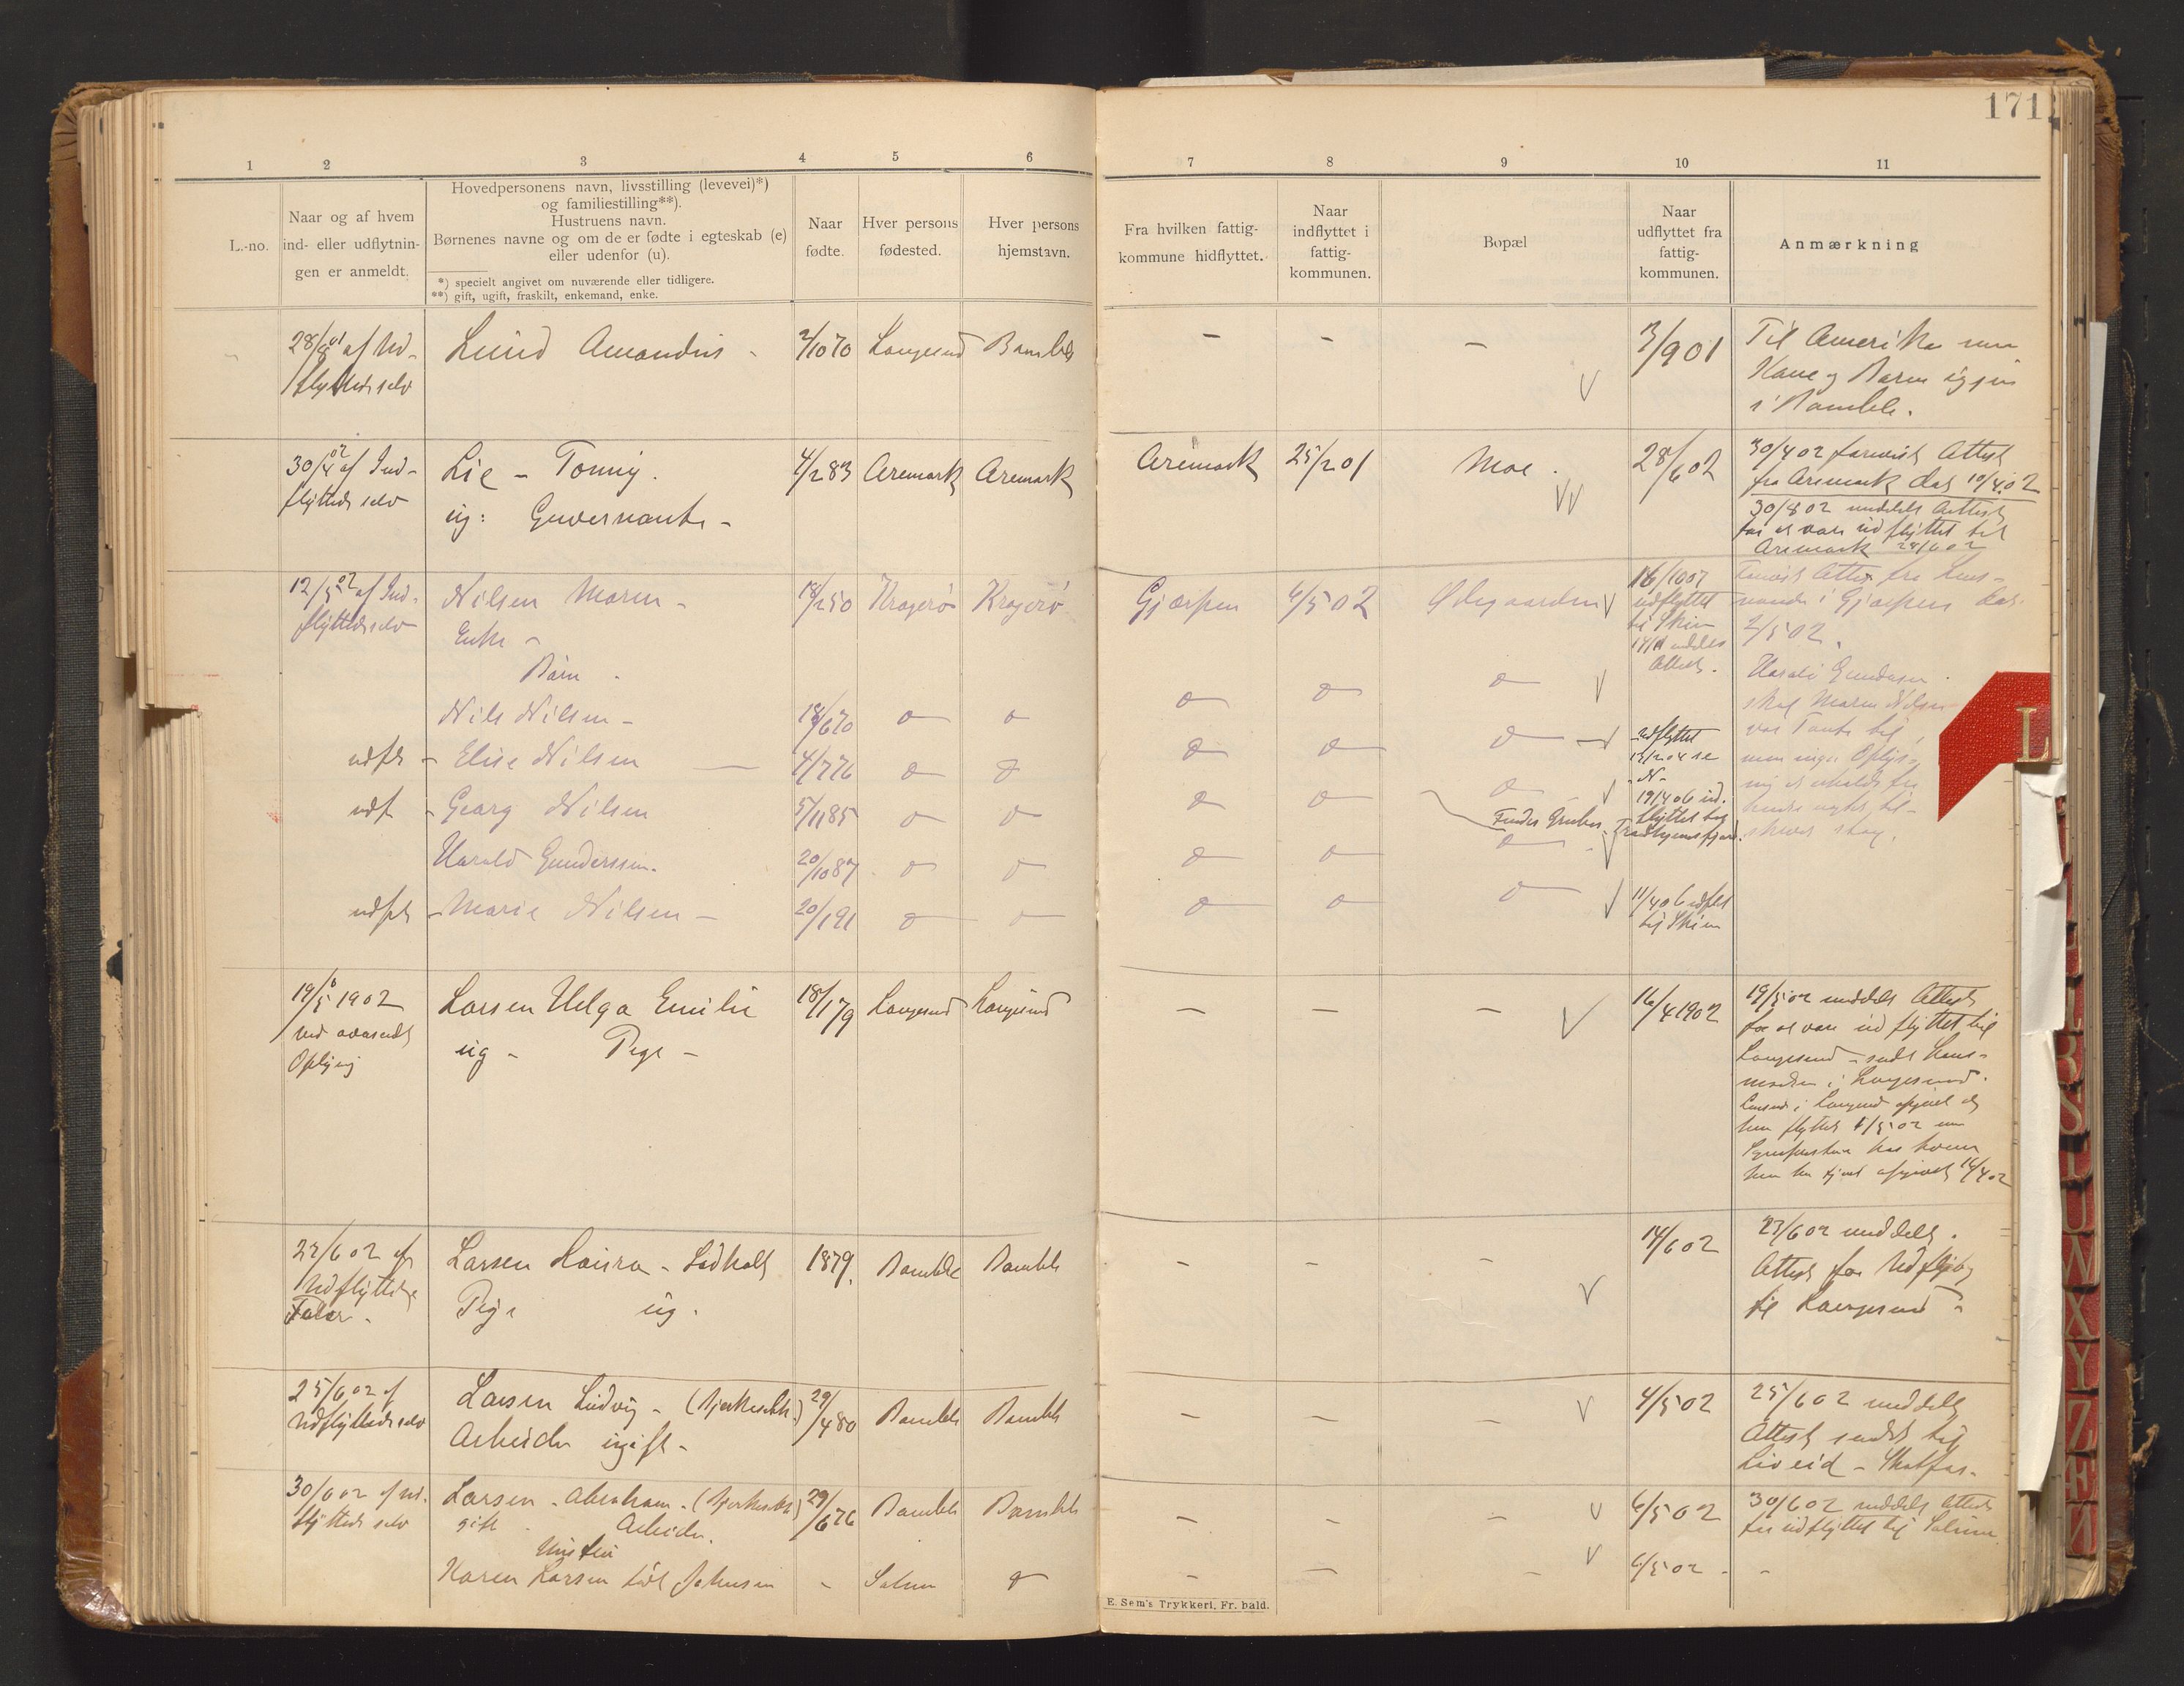 171
1 2 3 4 5 6 7 8 9 10 11
L.-no.
Naar og af hvem
ind- eller udflytnin-
gen er anmeldt.
Hovedpersonens navn, livsstilling (levevei)*)
og familiestilling**).
Hustruens navn.
Børnenes navne og om de er fødte i egteskab (e)
eller udenfor (u).
*) specielt angivet om nuværende eller tidligere.
**) gift, ugift, fraskilt, enkemand, enke.
Naar
fødte.
Hver persons
fødested.
Hver persons
hjemstavn.
Fra hvilken fattig-
kommune hidflyttet.
Naar
indflyttet i
fattig-
kommunen.
Bopæl
Naar
udflyttet fra
fattig-
kommunen.
Anmærkning
28/8 01 af Ud-
flyttede selv
Lund Amandus -
2/10 70
Langesund
Bamble
-
-
-
3/9 01
Til Amerika
Kone og Barn igjen
i Bamble.
30/4 02 af Ind-
flyttede selv
Lie - Tonny.
ug: Guvernante -
4/2 83
Aremark
Aremark
Aremark
25/2 01
Moe.
28/6 02
30/4 02 Attest
fra Aremark dat 10/4 02
30/8 02 meddelt Attest
for at være udflyttet til
Aremark 28/6 02
12/5 02 af Ind-
flyttede selv
Nilsen Maren -
Enke -
Børn.
18/2 50
Kragerø
Kragerø
Gjerpen
6/5 02
Ødegaarden
16/10 07
udflyttet
til Skien
meddelt
Attest.
Attest fra Lens-
mand i Gjerpen dat.
2/5 02.
Harald Gundersen
skal Maren Nilsen
være Tante til,
men ingen Oplys-
ning
Nils Nilsen -
18/6 70
udfl -
Elise Nilsen
4/7 76
udflyttet
13/2 04 se
-N-
udf -
Georg Nilsen
5/11 85
19/4 06 ud-
flyttet til
Fundes Gruber, Trondhjemsfjord.
Harald Gunderssen.
20/10 87
udfl -
Marie Nilsen -
20/1 91
11/4 06 udfl
til Skien
19/5 1902
ved avasendt
Oplysning
Larsen Helga Emilie
ug - Pige -
18/1 79
Langesund
Langesund
-
-
-
16/4 1902
19/5 02 meddelt Attest
for at være udflyttet til
Langesund - sendt Lens-
manden i Langesund.
Lensmd i Langesund opgivet at
hun flyttede 1/5 02
hun har tjent opgivet 16/4 02
22/6 02 af
Udflyttedes
Fader.
Larsen Laura - Ladholt
Pige ug.
1879.
Bamble
Bamble
-
-
-
14/6 02
23/6 02 meddelt.
Attest for Udflytng
til Langesund -
25/6 02 af
Udflyttede selv
Larsen Ludvig -
Arbeider ugift -
29/4 80
Bamble
Bamble
-
-
-
4/5 02
25/6 02 meddelt
Attest sendt til
Løveid - Skotfos.
30/6 02 af ud-
flyttede selv
Larsen - Abraham -
gift. Arbeider.
Hustru
29/6 76
Bamble
Bamble
-
-
-
6/5 02
30/6 02 meddelt Attest
for udflyttet til Solum
Karen Larsen født Johnsen
-
Solum
-
-
-
6/5 02 -
-
L
E. Sem's Trykkeri, Fr. hald.
R
S
T
U
W
X
Y
Z
Æ
Ø